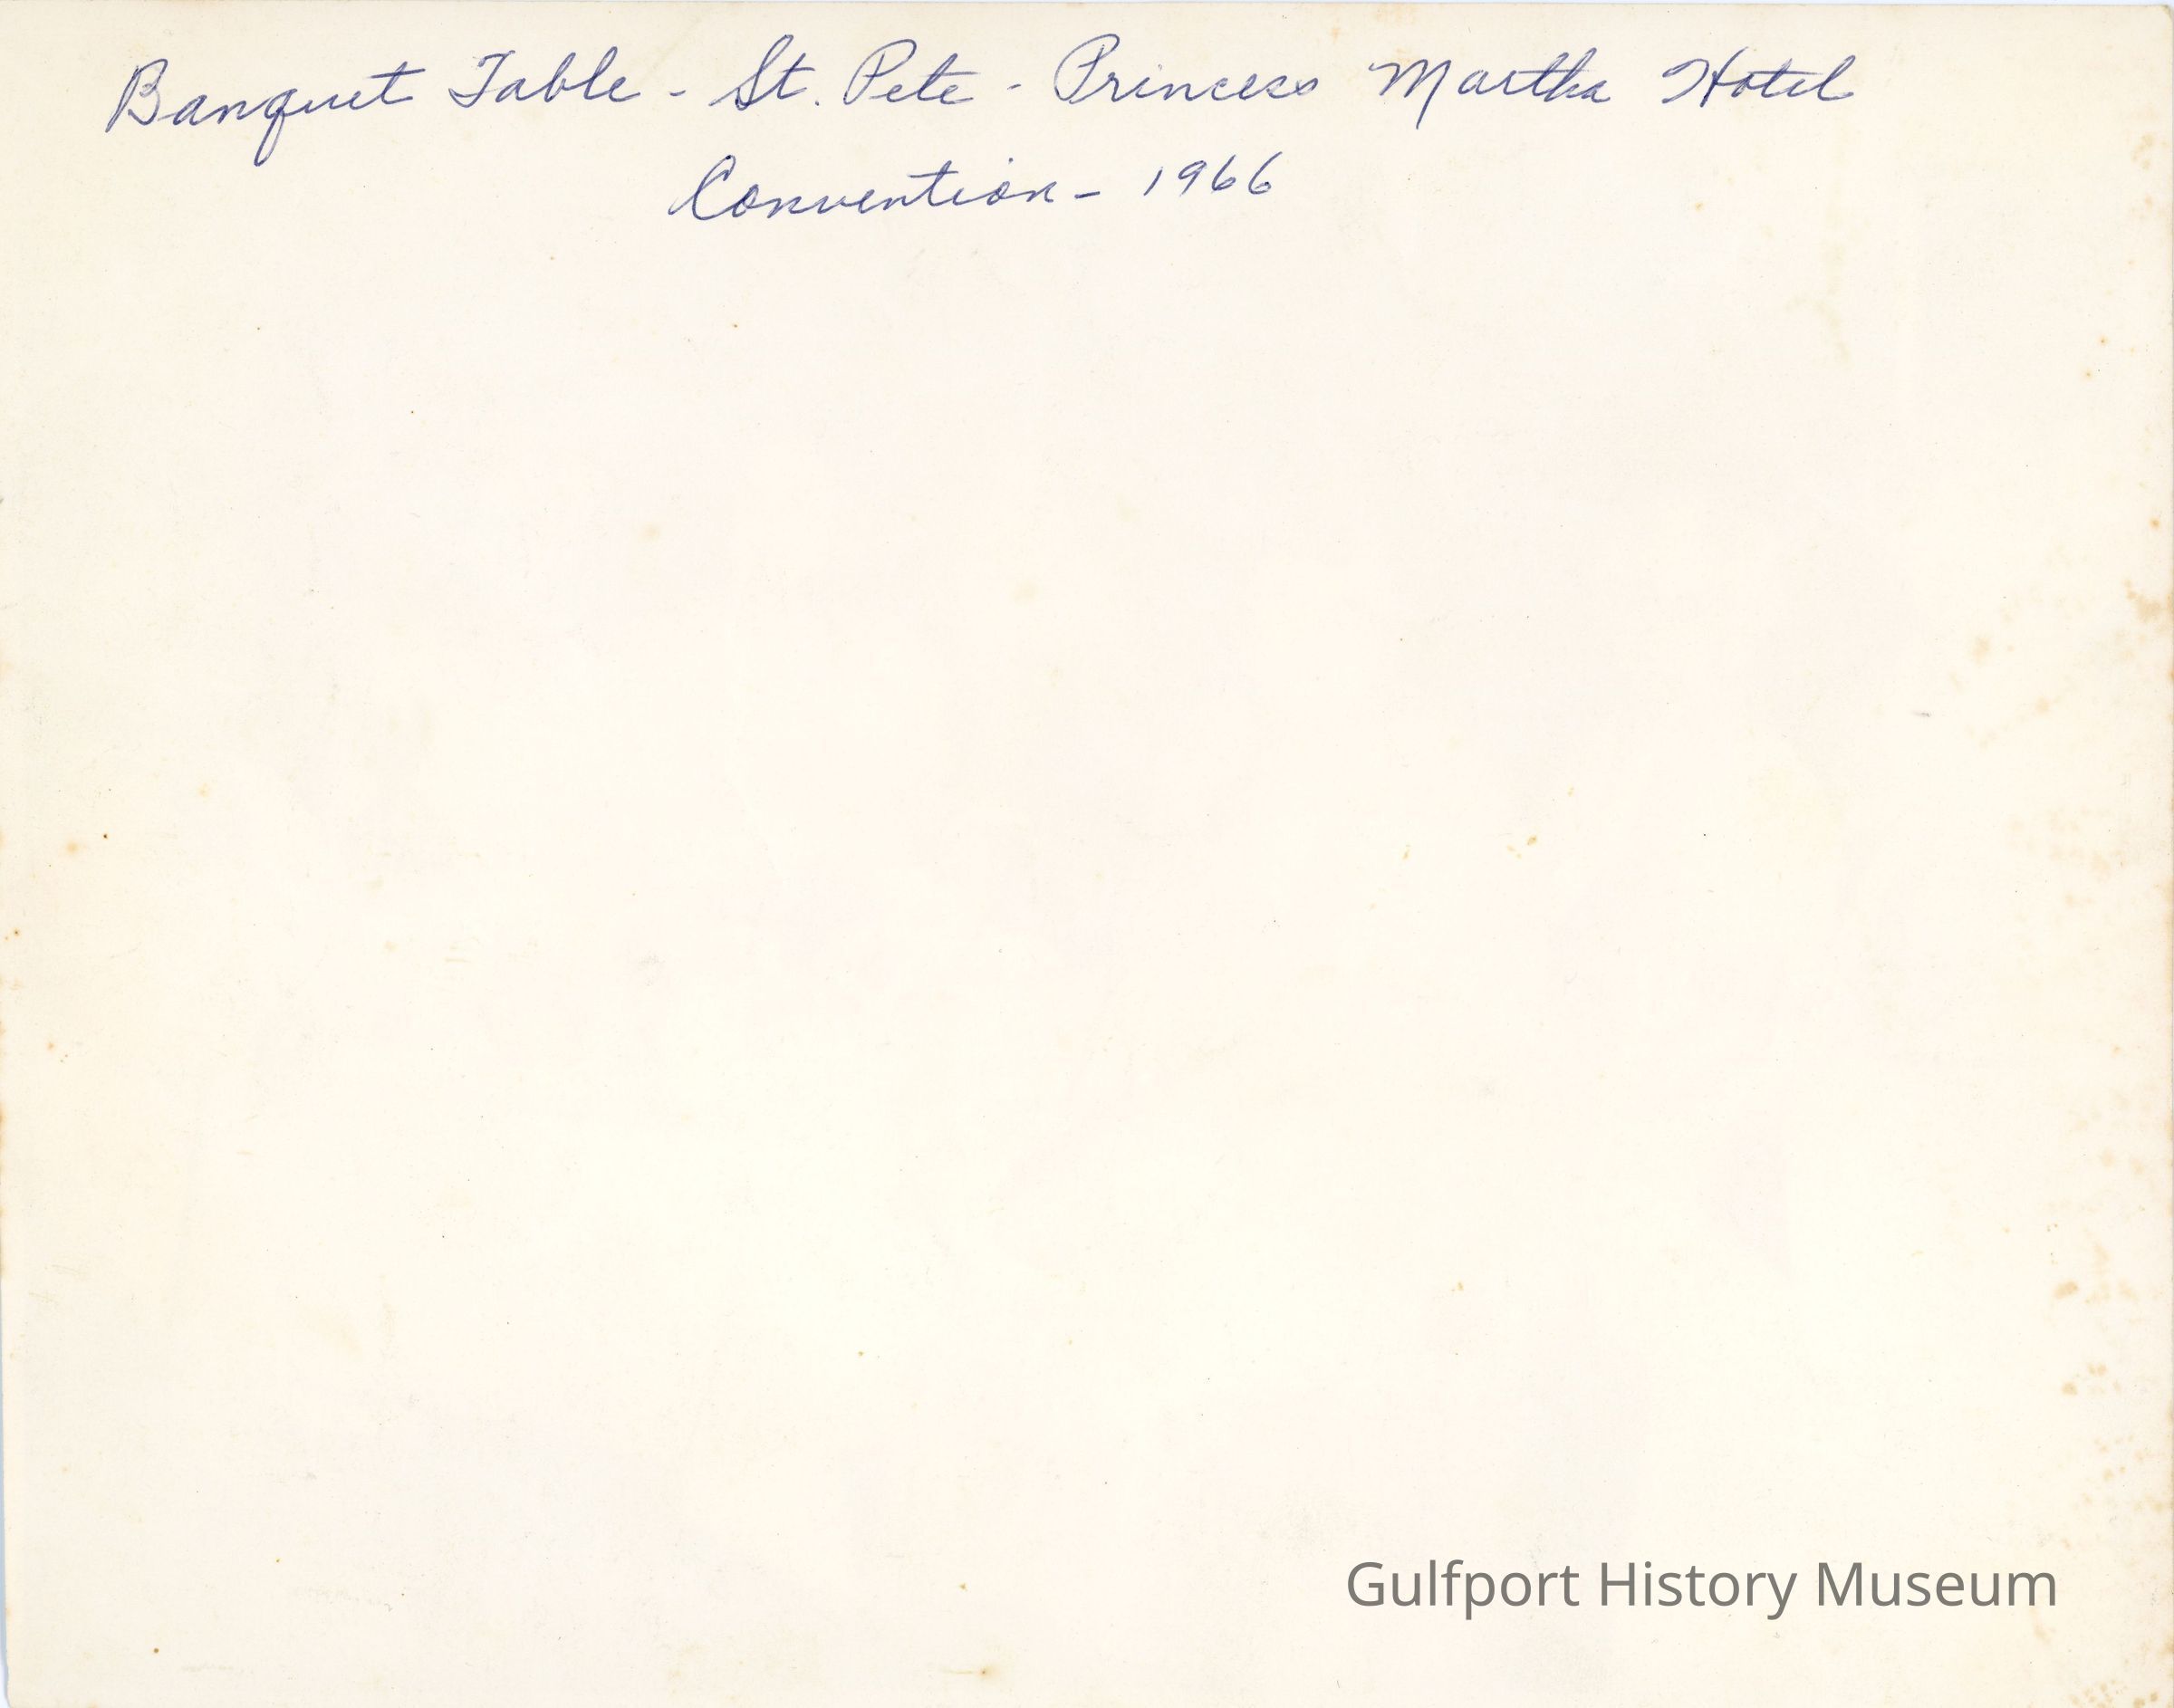 Banquet Table - St. Pete - Princess Martha Hotel
Convention - 1966
Gulfport History Museum